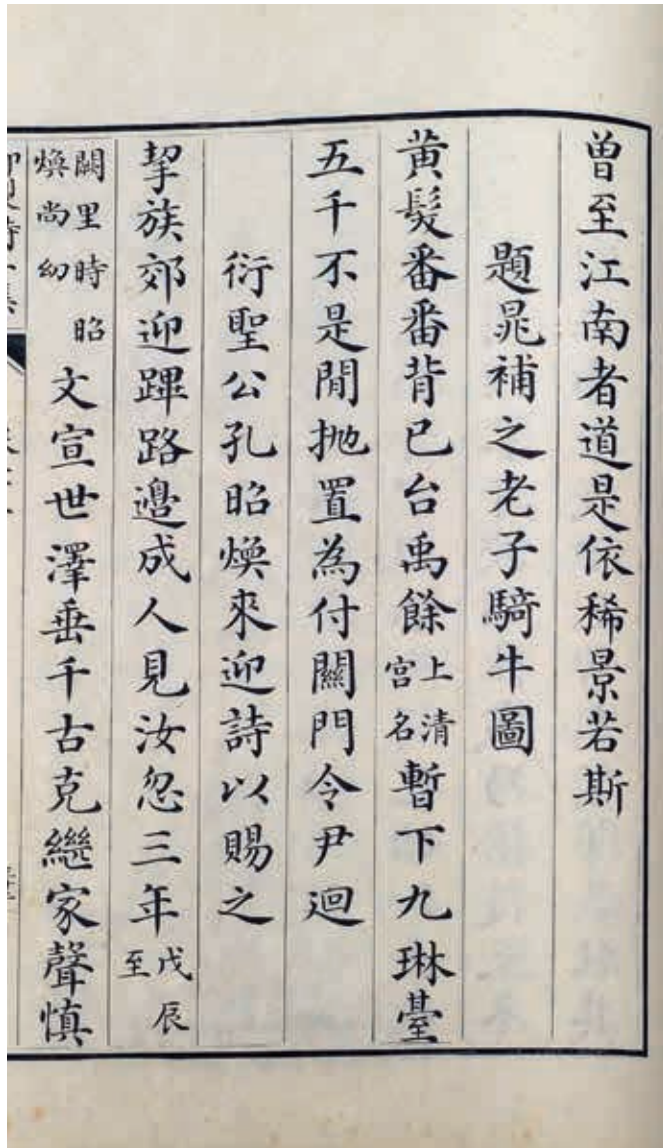 曾至江南者道是依稀景若斯
題晁補之老子騎牛圖
黃髮番番背已台禹餘上清宮名暫下九琳臺
五千不是閒拋置為付關門令尹迴
衍聖公孔昭煥來迎詩以賜之
挈族郊迎蹕路邊成人見汝忽三年戊辰至
闕里時昭煥尚幼文宣世澤垂千古克繼家聲慎